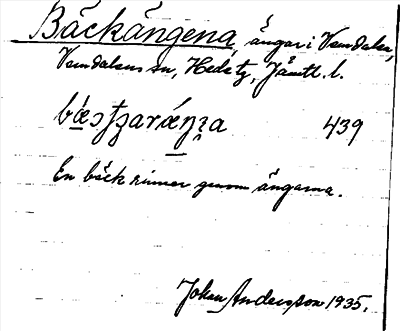 Bäckängena, ängar i Vemdalen,
Vemdalens sn, Hede tg, Jämtl. l.
439
En bäck rinner genom ängarna.
Johan Andersson 1935.